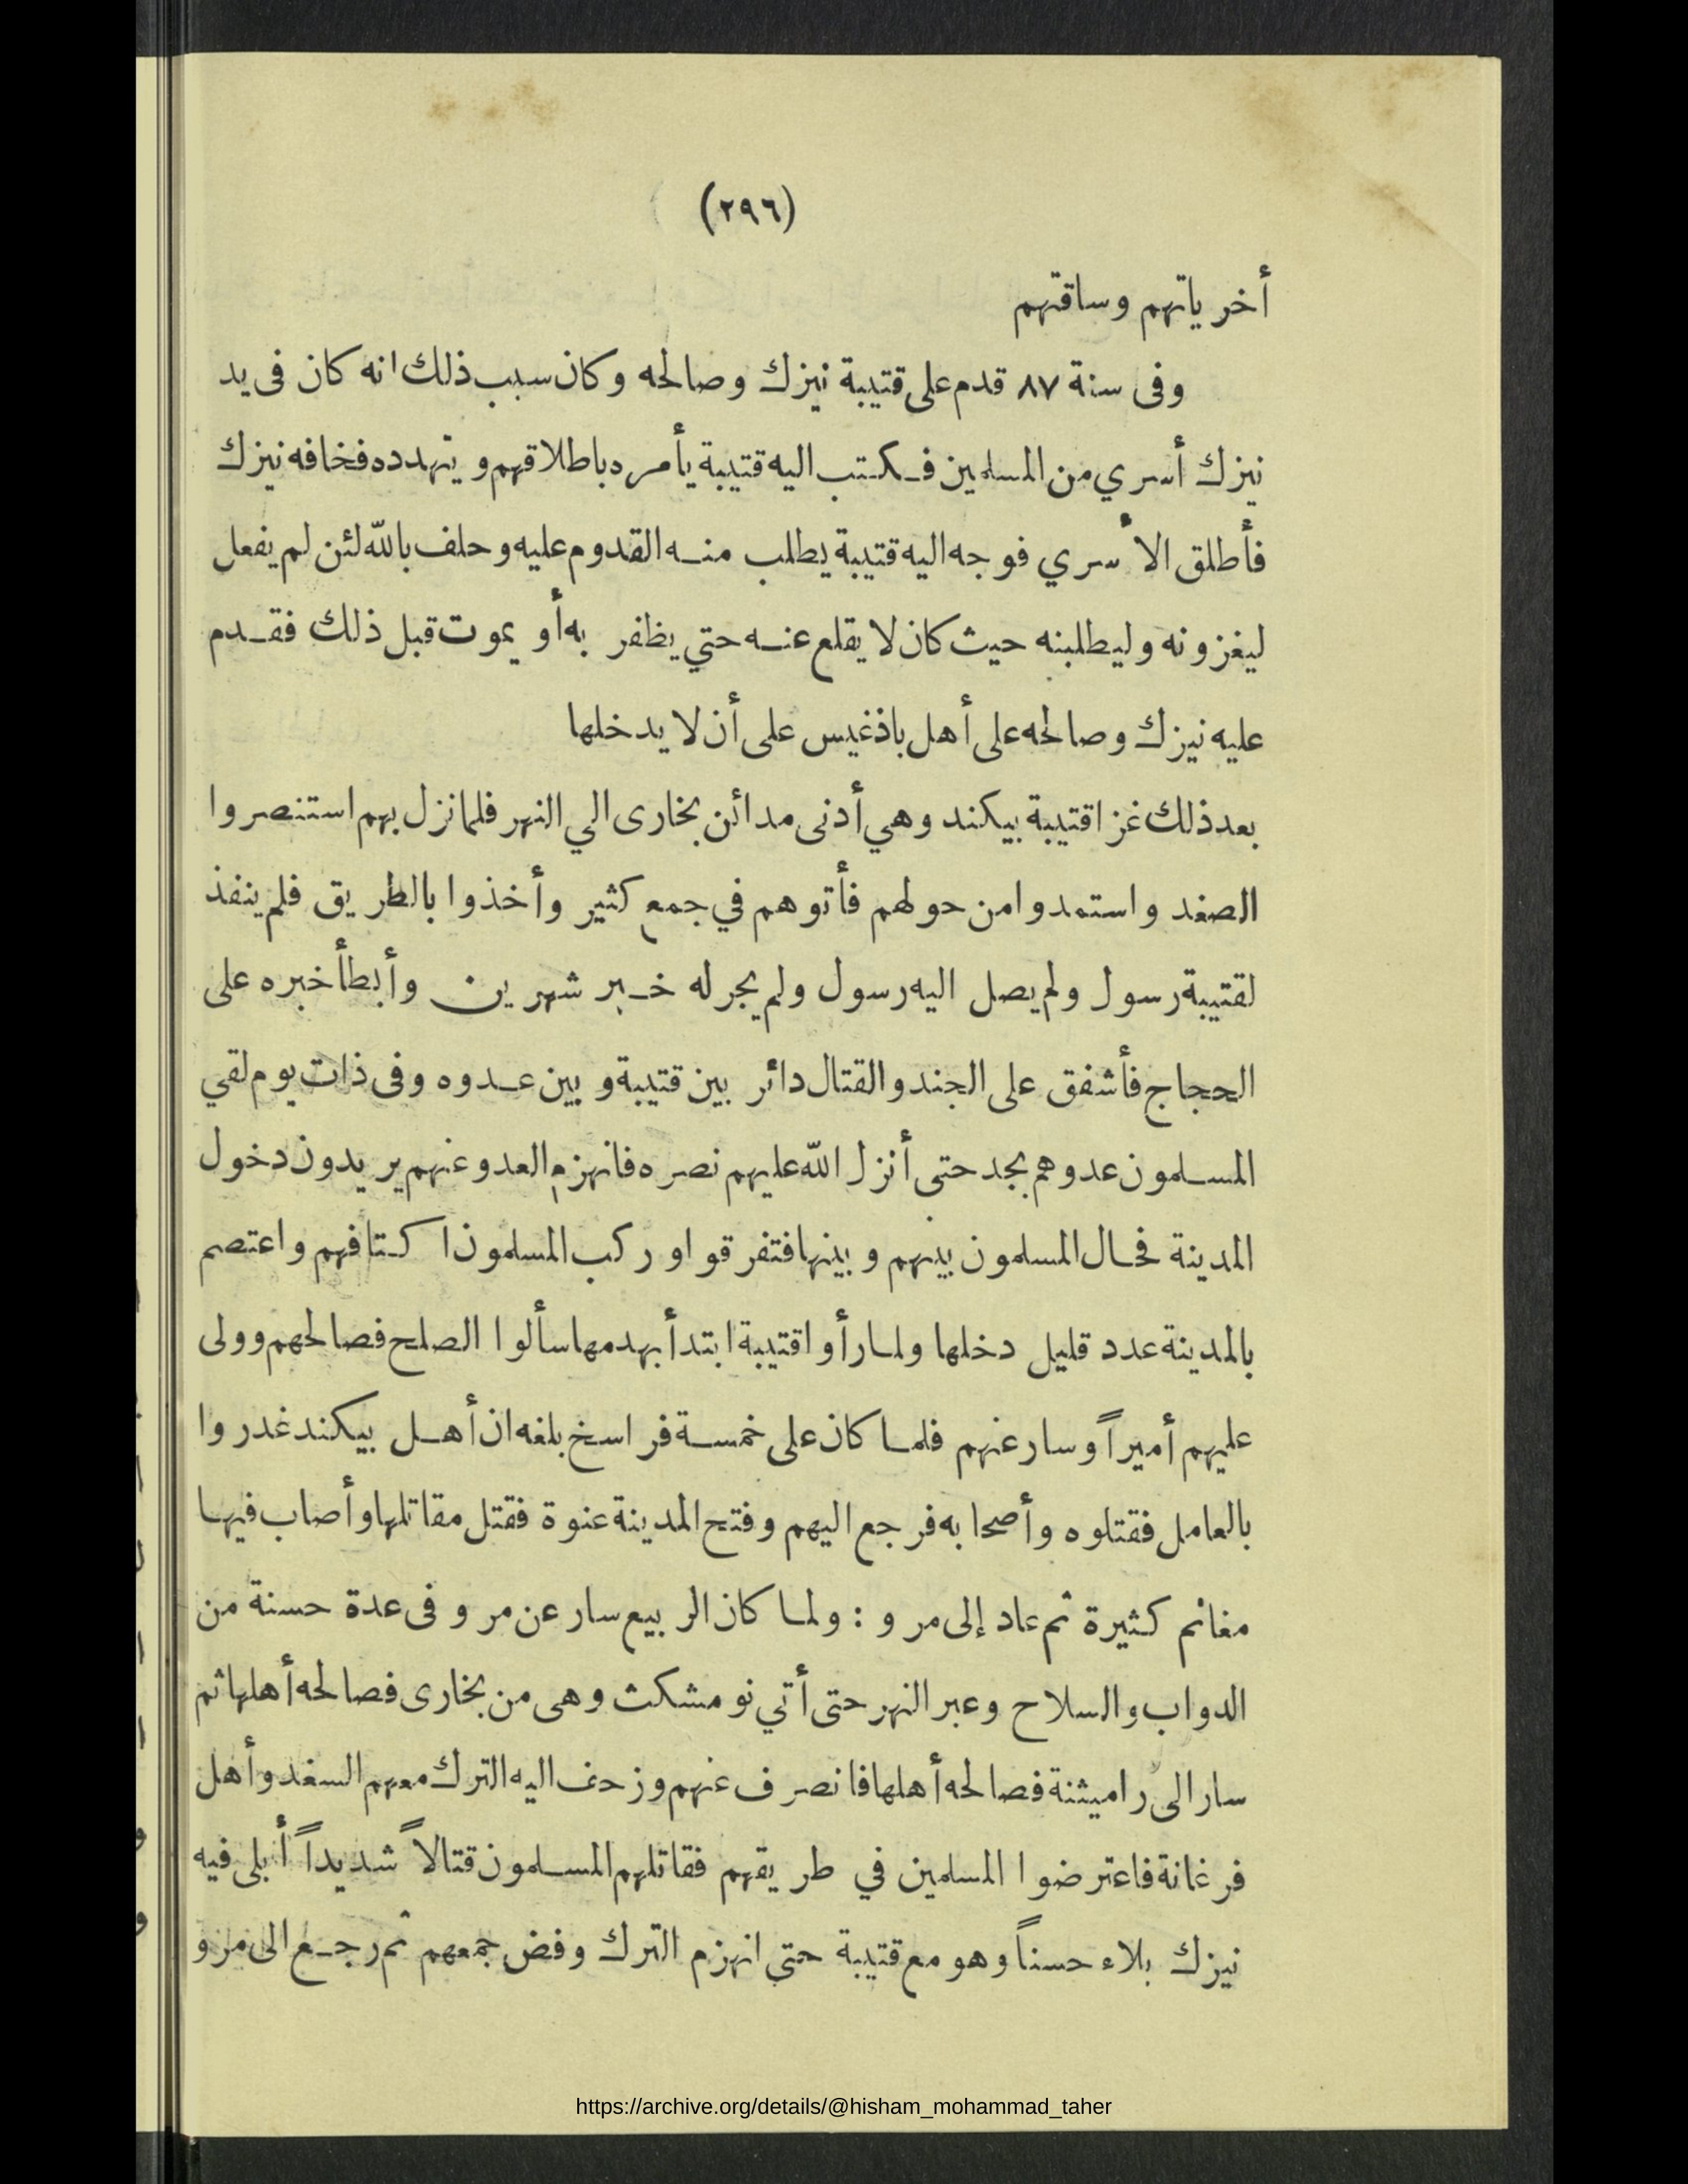 (٢٩٦)
أخر ياتهم وساقتهم
وفى سنة ٨٧ قدم على قتيبة نيزك وصالحه وكان سبب ذلك انه كان فى يد
نيزك أسري من المسلمين فكتب اليه قتيبة يأمره باطلاقهم ويتهدده فخافه نيزك
فأطلق الأسري فوجه اليه قتيبة يطلب منه القدوم عليه وحلف بالله لئن لم يفعل
ليغزونه وليطلبنه حيث كان لا يقلع عنه حتي يظفر به أو يموت قبل ذلك فقدم
عليه نيزك وصالحه على أهل باذغيس على أن لا يدخلها
بعد ذلك غزا قتيبة بيكند وهي أدنى مدائن بخارى الي النهر فلما نزل بهم استنصروا
الصغد واستمدوا من حولهم فأتوهم في جمع كثير وأخذوا بالطريق فلم ينفذ
لقتيبة رسول ولم يصل اليه رسول ولم يجر له خبر شهرين وأبطأ خبره على
الحجاج فأشفق على الجند والقتال دائر بين قتيبة وبين عدوه وفى ذات يوم لقي
المسلمون عدوهم بجد حتى أنزل الله عليهم نصره فانهزم العدو عنهم يريدون دخول
المدينة فحال المسلمون بينهم وبينها فتفرقوا وركب المسلمون اكتافهم واعتصم
بالمدينة عدد قليل دخلها ولما رأوا قتيبة ابتدأ بهدمها سألوا الصلح فصالحهم وولى
عليهم أميراً وسار عنهم فلما كان على خمسة فراسخ بلغه ان أهل بيكند غدروا
بالعامل فقتلوه وأصحابه فرجع اليهم وفتح المدينة عنوة فقتل مقاتلها وأصاب فيها
مغانم كثيرة ثم عاد إلى مرو : ولما كان الربيع سار عن مرو فى عدة حسنة من
الدواب والسلاح وعبر النهر حتى أتي نومشكث وهى من بخارى فصالحه أهلها ثم
سار الى راميثنة فصالحه أهلها فانصرف عنهم وزحف اليه الترك معهم السغد وأهل
فرغانة فاعترضوا المسلمين في طريقهم فقاتلهم المسلمون قتالاً شديداً أبلى فيه
نيزك بلاء حسناً وهو مع قتيبة حتي انهزم الترك وفض جمعهم ثم رجع الى مرو
https://archive.org/details/@hisham_mohammad_taher